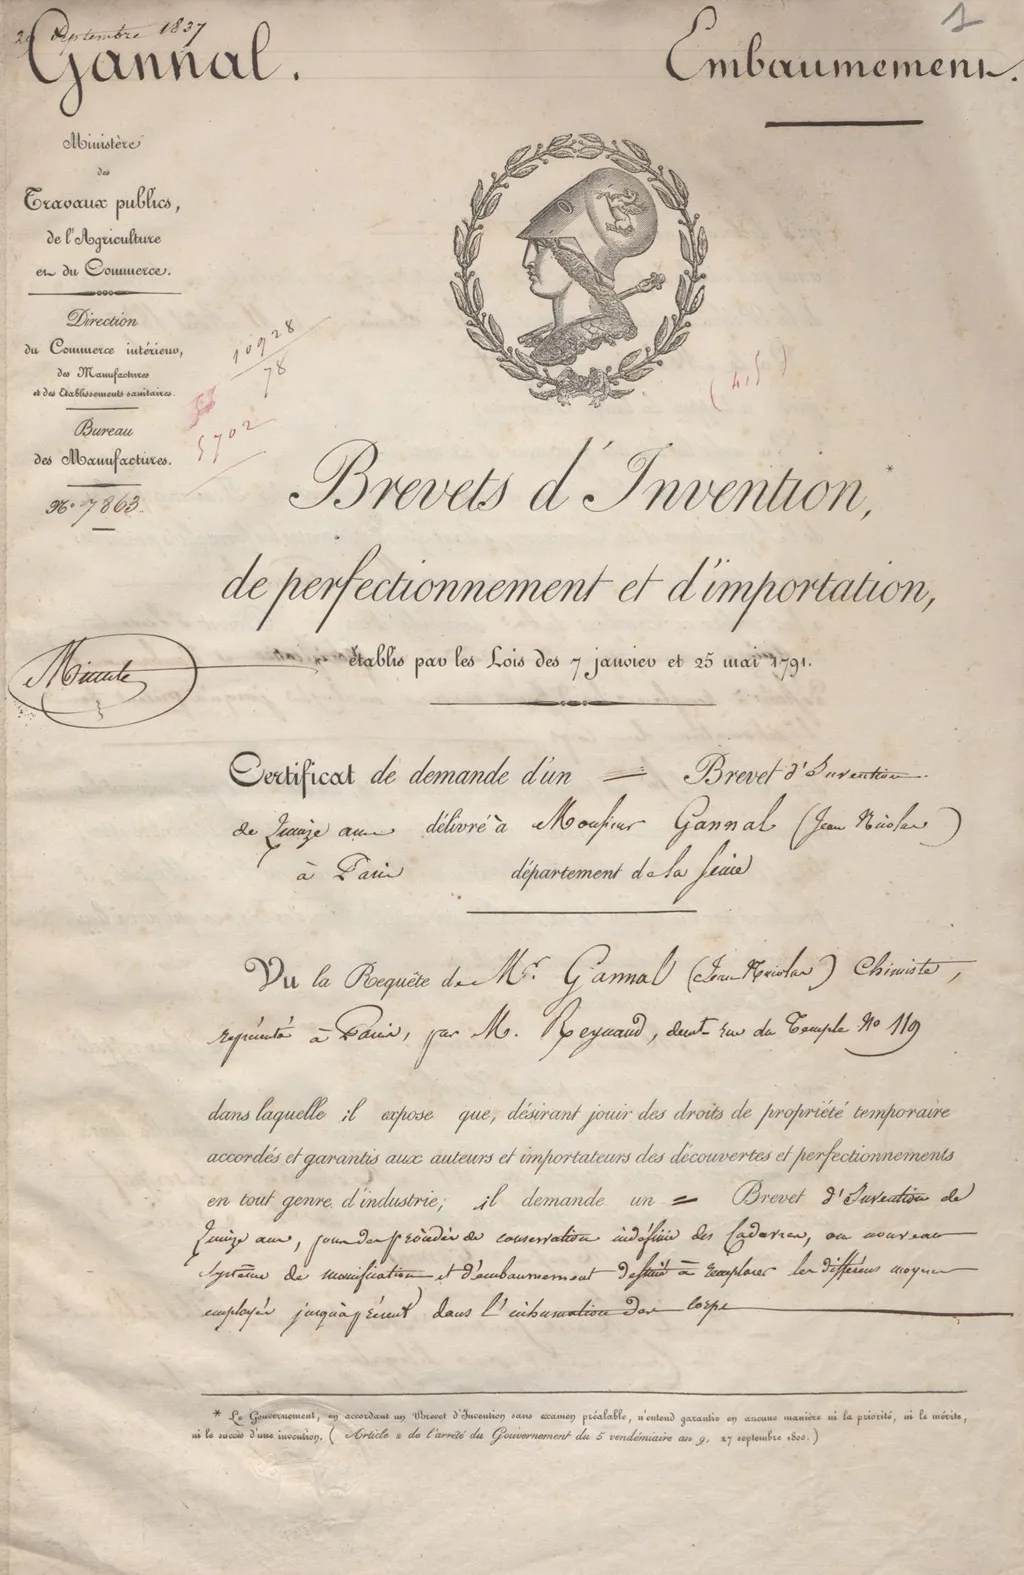 Septembre 1837
1
Gannal.
Embaumement.
Ministère
des
Travaux publics,
de l'Agriculture
et du Commerce.
Direction
du Commerce intérieur,
des Manufactures
et des Etablissements sanitaires.
Bureau
des Manufactures.
No. 7863.
10928
78
5702
Brevets d'Invention,*
de perfectionnement et d'importation,
établis par les Lois des 7 janvier et 25 mai 1791.
Minute
Certificat de demande d'un = Brevet d'Invention
de Quinze ans délivré à Monsieur Gannal (Jean Nicolas)
à Paris département de la Seine
Vu la Requête de Mr. Gannal (Jean Nicolas) Chimiste,
représenté à Paris, par M. Reynaud, demt. rue du Temple No 119
dans laquelle il expose que, désirant jouir des droits de propriété temporaire
accordés et garantis aux auteurs et importateurs des découvertes et perfectionnements
en tout genre d'industrie; il demande un = Brevet d'Invention de
Quinze ans, pour des procédés de conservation indéfinie des Cadavres, ou nouveau
système de momification et d'embaumement destiné à remplacer les différens moyens
employés jusqu'à présent dans l'inhumation des corps
* Le Gouvernement, en accordant un Brevet d'Invention sans examen préalable, n'entend garantir en aucune manière ni la priorité, ni le mérite,
ni le succès d'une invention. (Article 2 de l'arrêté du Gouvernement du 5 vendémiaire an 9, 27 septembre 1800.)